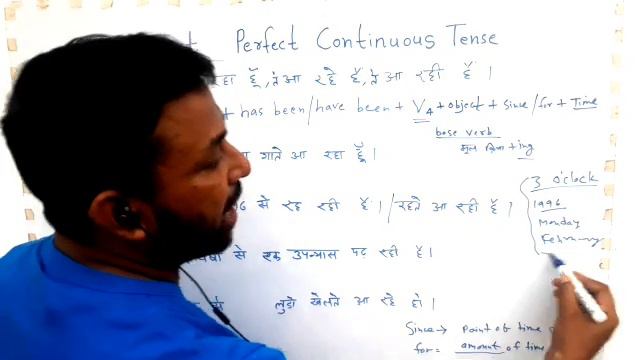 Perfect Continuous Tense
रहा हूँ, ते आ रहे हैं, ते आ रही है ।
+ has been/have been + V4 + object + since/for + Time
base verb
मूल क्रिया + ing
गाते आ रहा हूँ ।
3 o'clock
से रह रही है । / रहते आ रही है ।
1996
Monday
February
से एक उपन्यास पढ़ रही है ।
लुडो खेलते आ रहे हो ।
Since → Point of time
for = amount of time